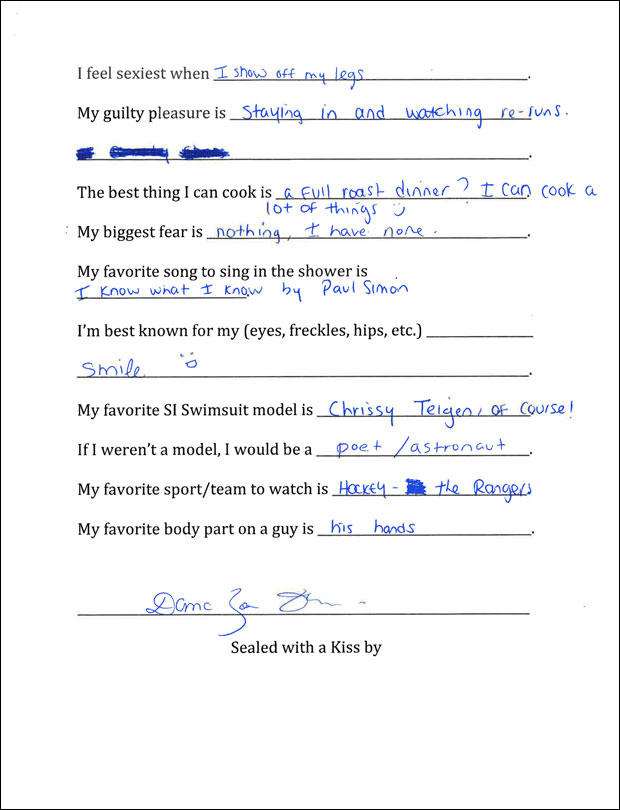 I feel sexiest when I show off my legs.
My guilty pleasure is staying in and watching re-runs.
.
The best thing I can cook is a full roast dinner? I can cook a
lot of things :)
My biggest fear is nothing, I have none.
My favorite song to sing in the shower is
I know what I know by Paul Simon.
I'm best known for my (eyes, freckles, hips, etc.)
smile :D.
My favorite SI Swimsuit model is Chrissy Teigen, of course!
If I weren't a model, I would be a poet/astronaut.
My favorite sport/team to watch is Hockey - the Rangers
My favorite body part on a guy is his hands.
Sealed with a Kiss by